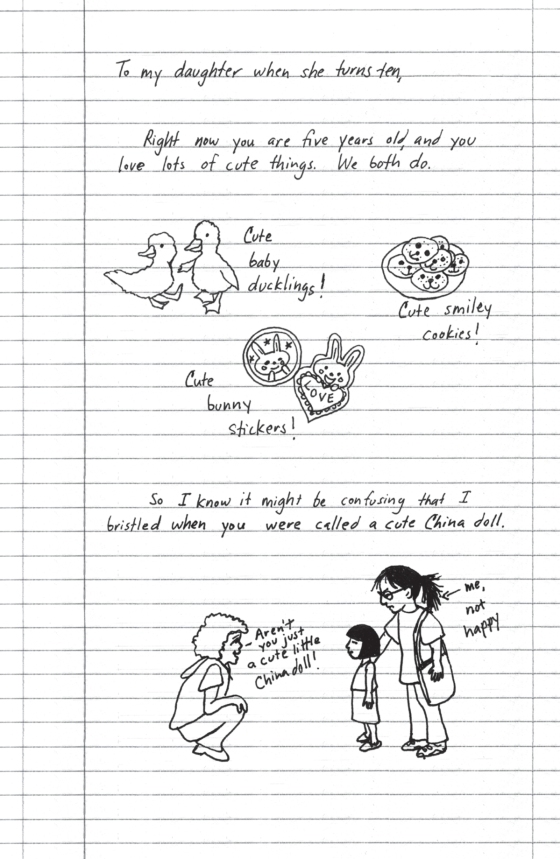 To my daughter when she turns ten,
Right now you are five years old, and you
love lots of cute things. We both do.
Cute
baby
ducklings!
Cute smiley
cookies!
Cute
bunny
stickers!
LOVE
So I know it might be confusing that I
bristled when you were called a cute China doll.
Aren't
you just
a cute little
China doll!
me,
not
happy